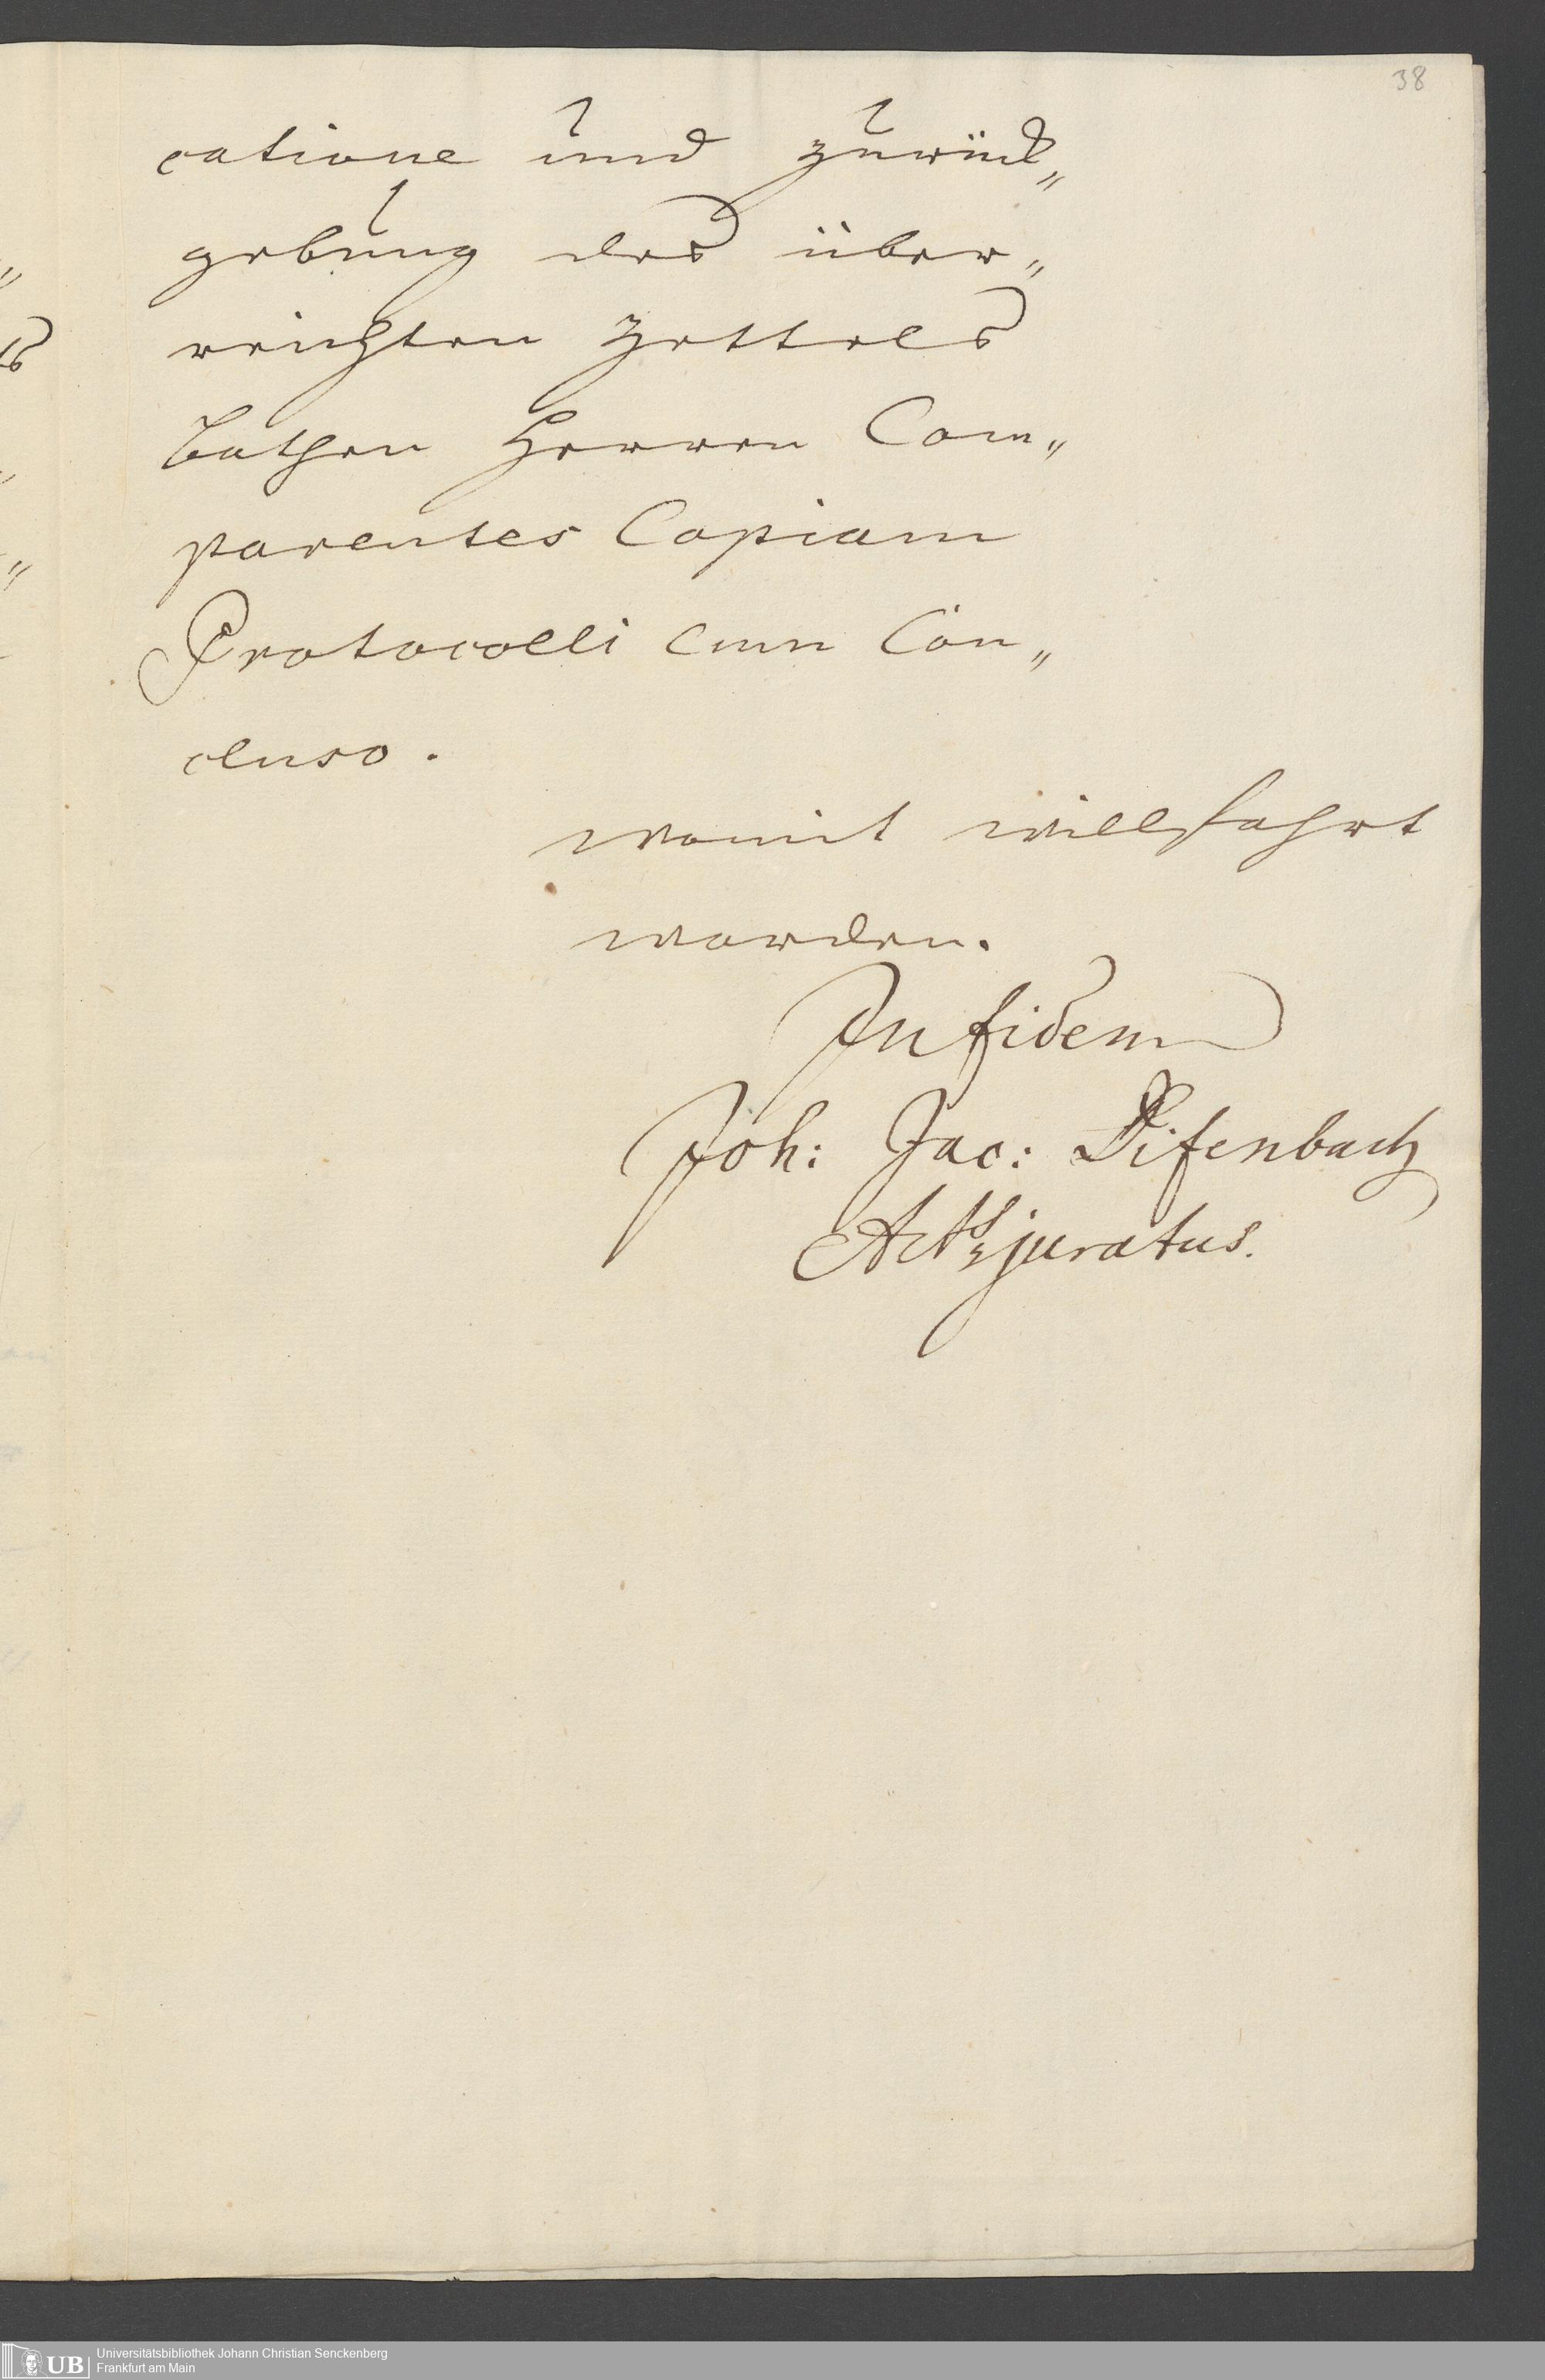 38
catione und zurück„
gebung des über„
reichten Zettels
bathen Herren Com„
parentes Copiam
Protocolli cum Con„
cluso.
womit willfahrt
worden.
In fidem
Joh: Jac: Difenbach
Acts juratus.
UB Universitätsbibliothek Johann Christian Senckenberg
Frankfurt am Main